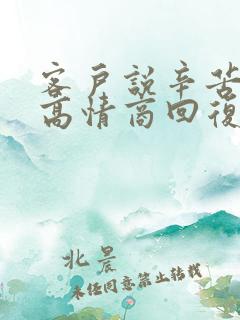 客戶說辛苦
高情商回復
北晨
未经同意禁止转载